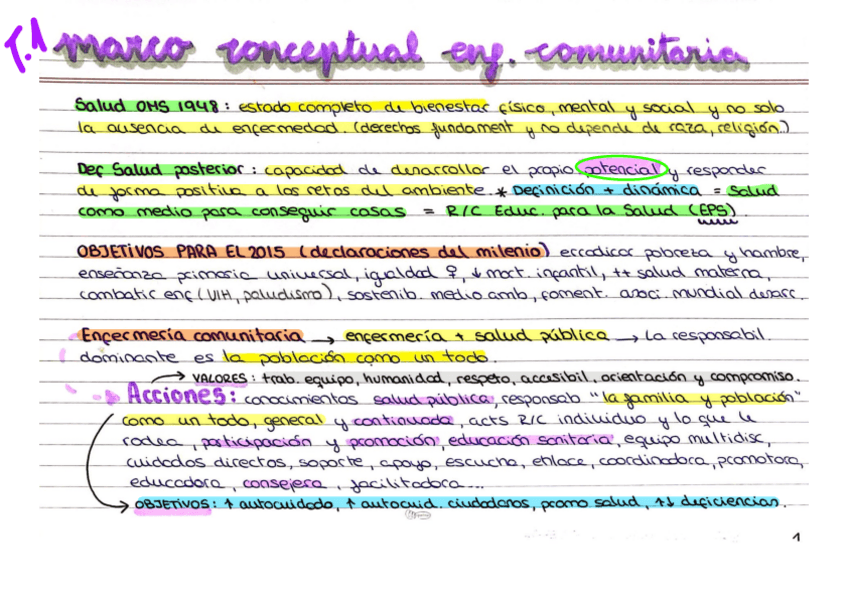 T.1 marco conceptual enf. comunitaria
Salud OMS 1948: estado completo de bienestar físico, mental y social y no solo
la ausencia de enfermedad. (derechos fundament y no depende de raza, religión)
Dec Salud posterior: capacidad de desarrollar el propio potencial y responder
de forma positiva a los retos del ambiente. * Definición + dinámica = Salud
como medio para conseguir cosas = R/C Educ. para la Salud (EPS).
OBJETIVOS PARA EL 2015 (declaraciones del milenio) erradicar pobreza y hambre,
enseñanza primaria universal, igualdad ♀, ↓ mort. infantil, ++ salud materna,
combatir enf (VIH, paludismo), sostenib. medio amb, foment. asoci. mundial desarr.
Enfermería comunitaria → enfermería + salud pública → La responsabil.
dominante es la población como un todo.
→ VALORES: trab. equipo, humanidad, respeto, accesibil, orientación y compromiso.
Acciones: conocimientos salud pública, responsab "la familia y población"
como un todo, general y continuada, acts R/C individuo y lo que le
rodea, participación y promoción, educación sanitaria, equipo multidisc,
cuidados directos, soporte, apoyo, escucha, enlace, coordinadora, promotora,
educadora, consejera, facilitadora...
→ OBJETIVOS: ↑ autocuidado, ↑ autocuid. ciudadanos, promo salud, ↑↓ deficiencias.
1